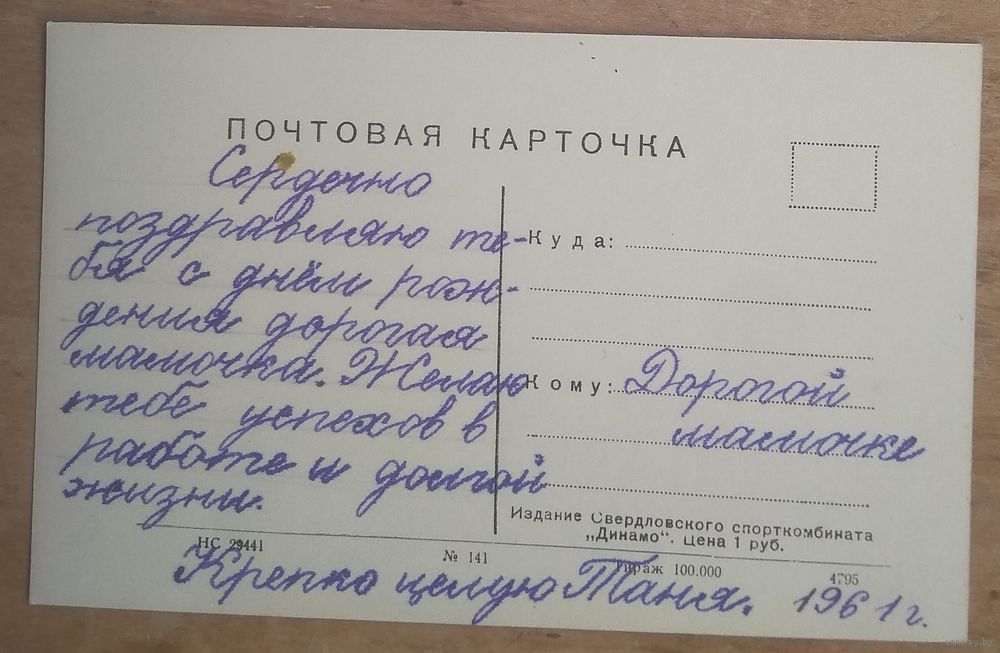 ПОЧТОВАЯ КАРТОЧКА
Сердечно
поздравляю те-
бя с днём рож-
дения дорогая
мамочка. Желаю
тебе успехов в
работе и долгой
жизни.
Куда:
Кому: Дорогой
мамочке
Издание Свердловского спорткомбината
„Динамо“. Цена 1 руб.
НС 29441 № 141 Тираж 100.000 4795
Крепко целую Таня. 1961 г.